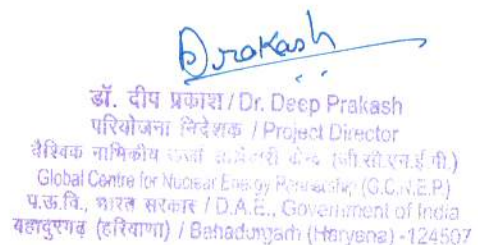 Dprakash
डॉ. दीप प्रकाश / Dr. Deep Prakash
परियोजना निदेशक / Project Director
वैश्विक नाभिकीय ऊर्जा केन्द्र (जी.सी.एन.ई.पी.)
Global Centre for Nuclear Energy Partnership (G.C.N.E.P.)
प.ऊ.वि., भारत सरकार / D.A.E., Government of India
बहादुरगढ़ (हरियाणा) / Bahadurgarh (Haryana) -124507